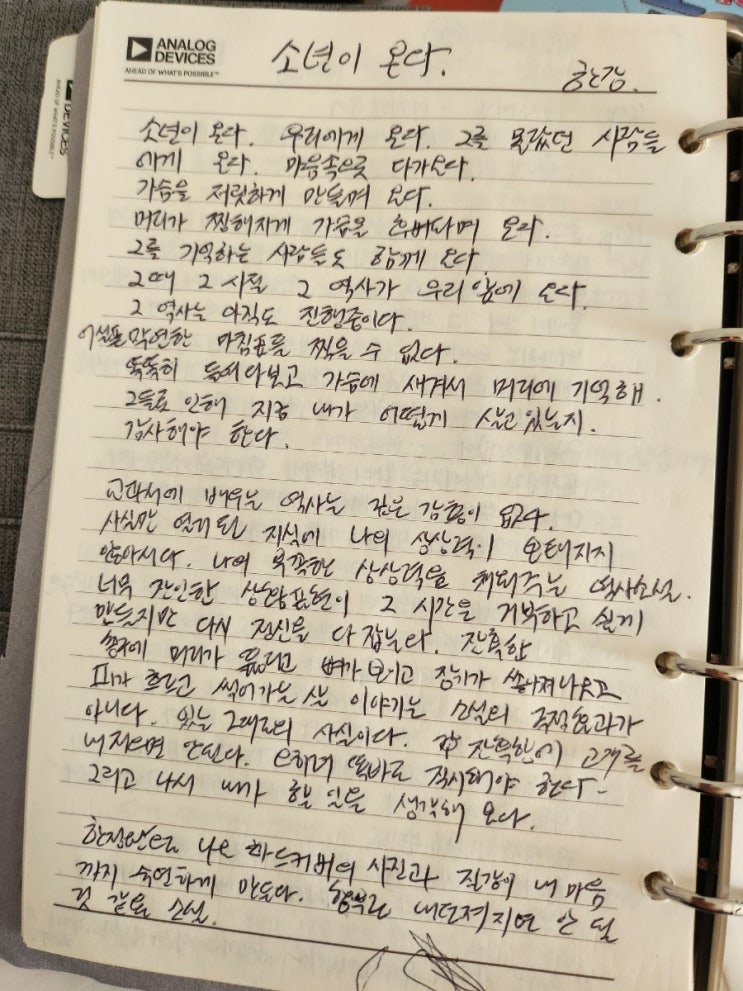 ANALOG
DEVICES
AHEAD OF WHAT'S POSSIBLE™
소년이 온다.
한강.
소년이 온다. 우리에게 온다. 그를 몰랐던 사람들
에게 온다. 마음속으로 다가온다.
가슴을 저릿하게 만들며 온다.
머리가 찡해지게 가슴을 후벼파며 온다.
그를 기억하는 사람들도 함께 온다.
그때 그 시절 그 역사가 우리 앞에 온다.
그 역사는 아직도 진행중이다.
어설픈 막연한 마침표를 찍을 수 없다.
똑똑히 들여다보고 가슴에 새겨서 머리에 기억해.
그들로 인해 지금 내가 어떻게 살고 있는지.
감사해야 한다.
교과서에 배우는 역사는 깊은 감흥이 없다.
사실만 열거된 지식에 나의 상상력이 보태지지
않아서다. 나의 부족한 상상력을 채워주는 역사소설.
너무 잔인한 상황표현이 그 시간을 거북하고 싫게
만들지만 다시 정신을 다 잡는다. 잔혹한
머리가 뚫리고 뼈가 보이고 장기가 쏟아져나오고
피가 흐르고 썩어가는 살 이야기는 소설의 극적효과가
아니다. 있는 그대로의 사실이다. 잔혹함에 고개를
내저으면 안된다. 똑바로 직시해야 한다-
그리고 나서 내가 할 일을 생각해 본다.
한정판으로 나온 하드커버의 사진과 질감이 내 마음
까지 숙연하게 만든다. 함부로 내던져지면 안 될
것 같은 소설.
DEVICES
AHEAD OF WHAT'S POSSIBLE™